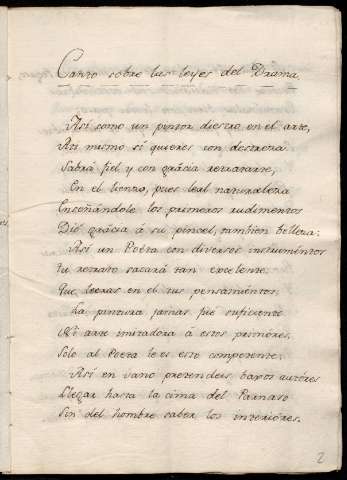 Canto sobre las leyes del Drama
Así como un pintor diestro en el arte,
Asi mismo si quieres con destreza
Sabrá fiel y con grácia retratarte,
En el lienzo, pues leal naturaleza
Enseñándole los primeros rudimentos
Dió grácia á su pincel, tambien belleza:
Asi un Poéta con diversos instrumentos
tu retrato sacará tan excelente.
Que leeras en el tus pensamientos.
La pintura jamas fue suficiente
Ni arte imitadora á estos primóres,
Sólo al Poeta le es esto competente;
Así en vano pretendeis baxos autóres
Llegar hasta la cima del Parnaso
Sin del hombre saber los interióres.
2